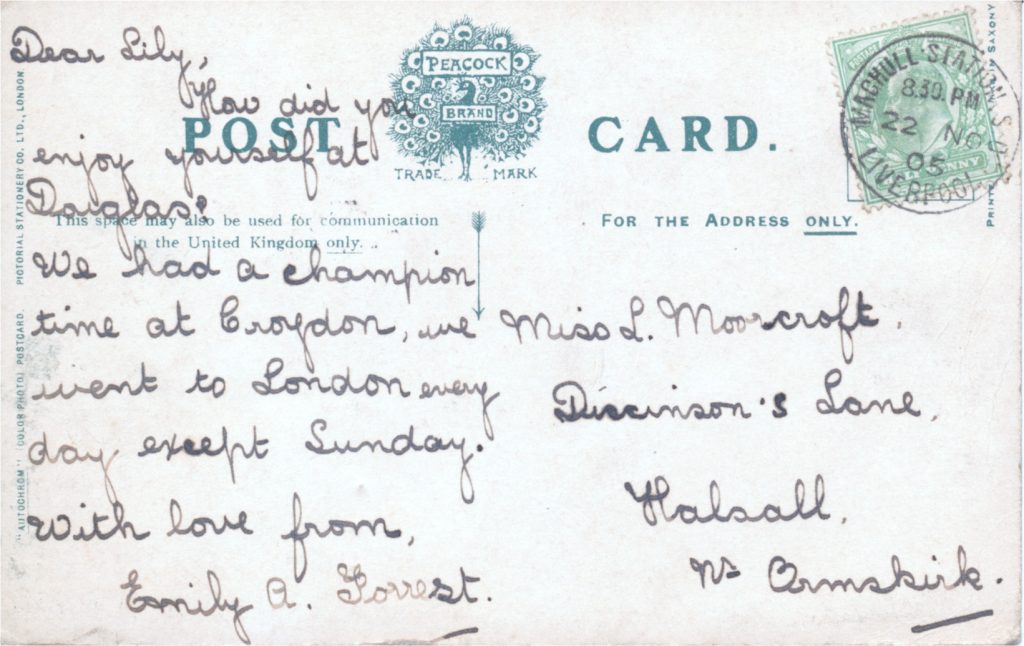 Dear Lily,
How did you
enjoy yourself at
Douglas?
We had a champion
time at Croydon, we
went to London every
day except Sunday.
With love from,
Emily A. Forrest.
POST CARD.
PEACOCK
BRAND
TRADE MARK
This space may also be used for communication
in the United Kingdom only.
FOR THE ADDRESS ONLY.
Miss L. Moorcroft.
Diccinson's Lane,
Halsall,
Nr Ormskirk.
MAGHULL STATION S.O.
8.30. PM
22 NO
05
LIVERPOOL
"AUTOCHROM" (COLOR PHOTO) POSTCARD. PICTORIAL STATIONERY CO. LTD., LONDON.
IN SAXONY